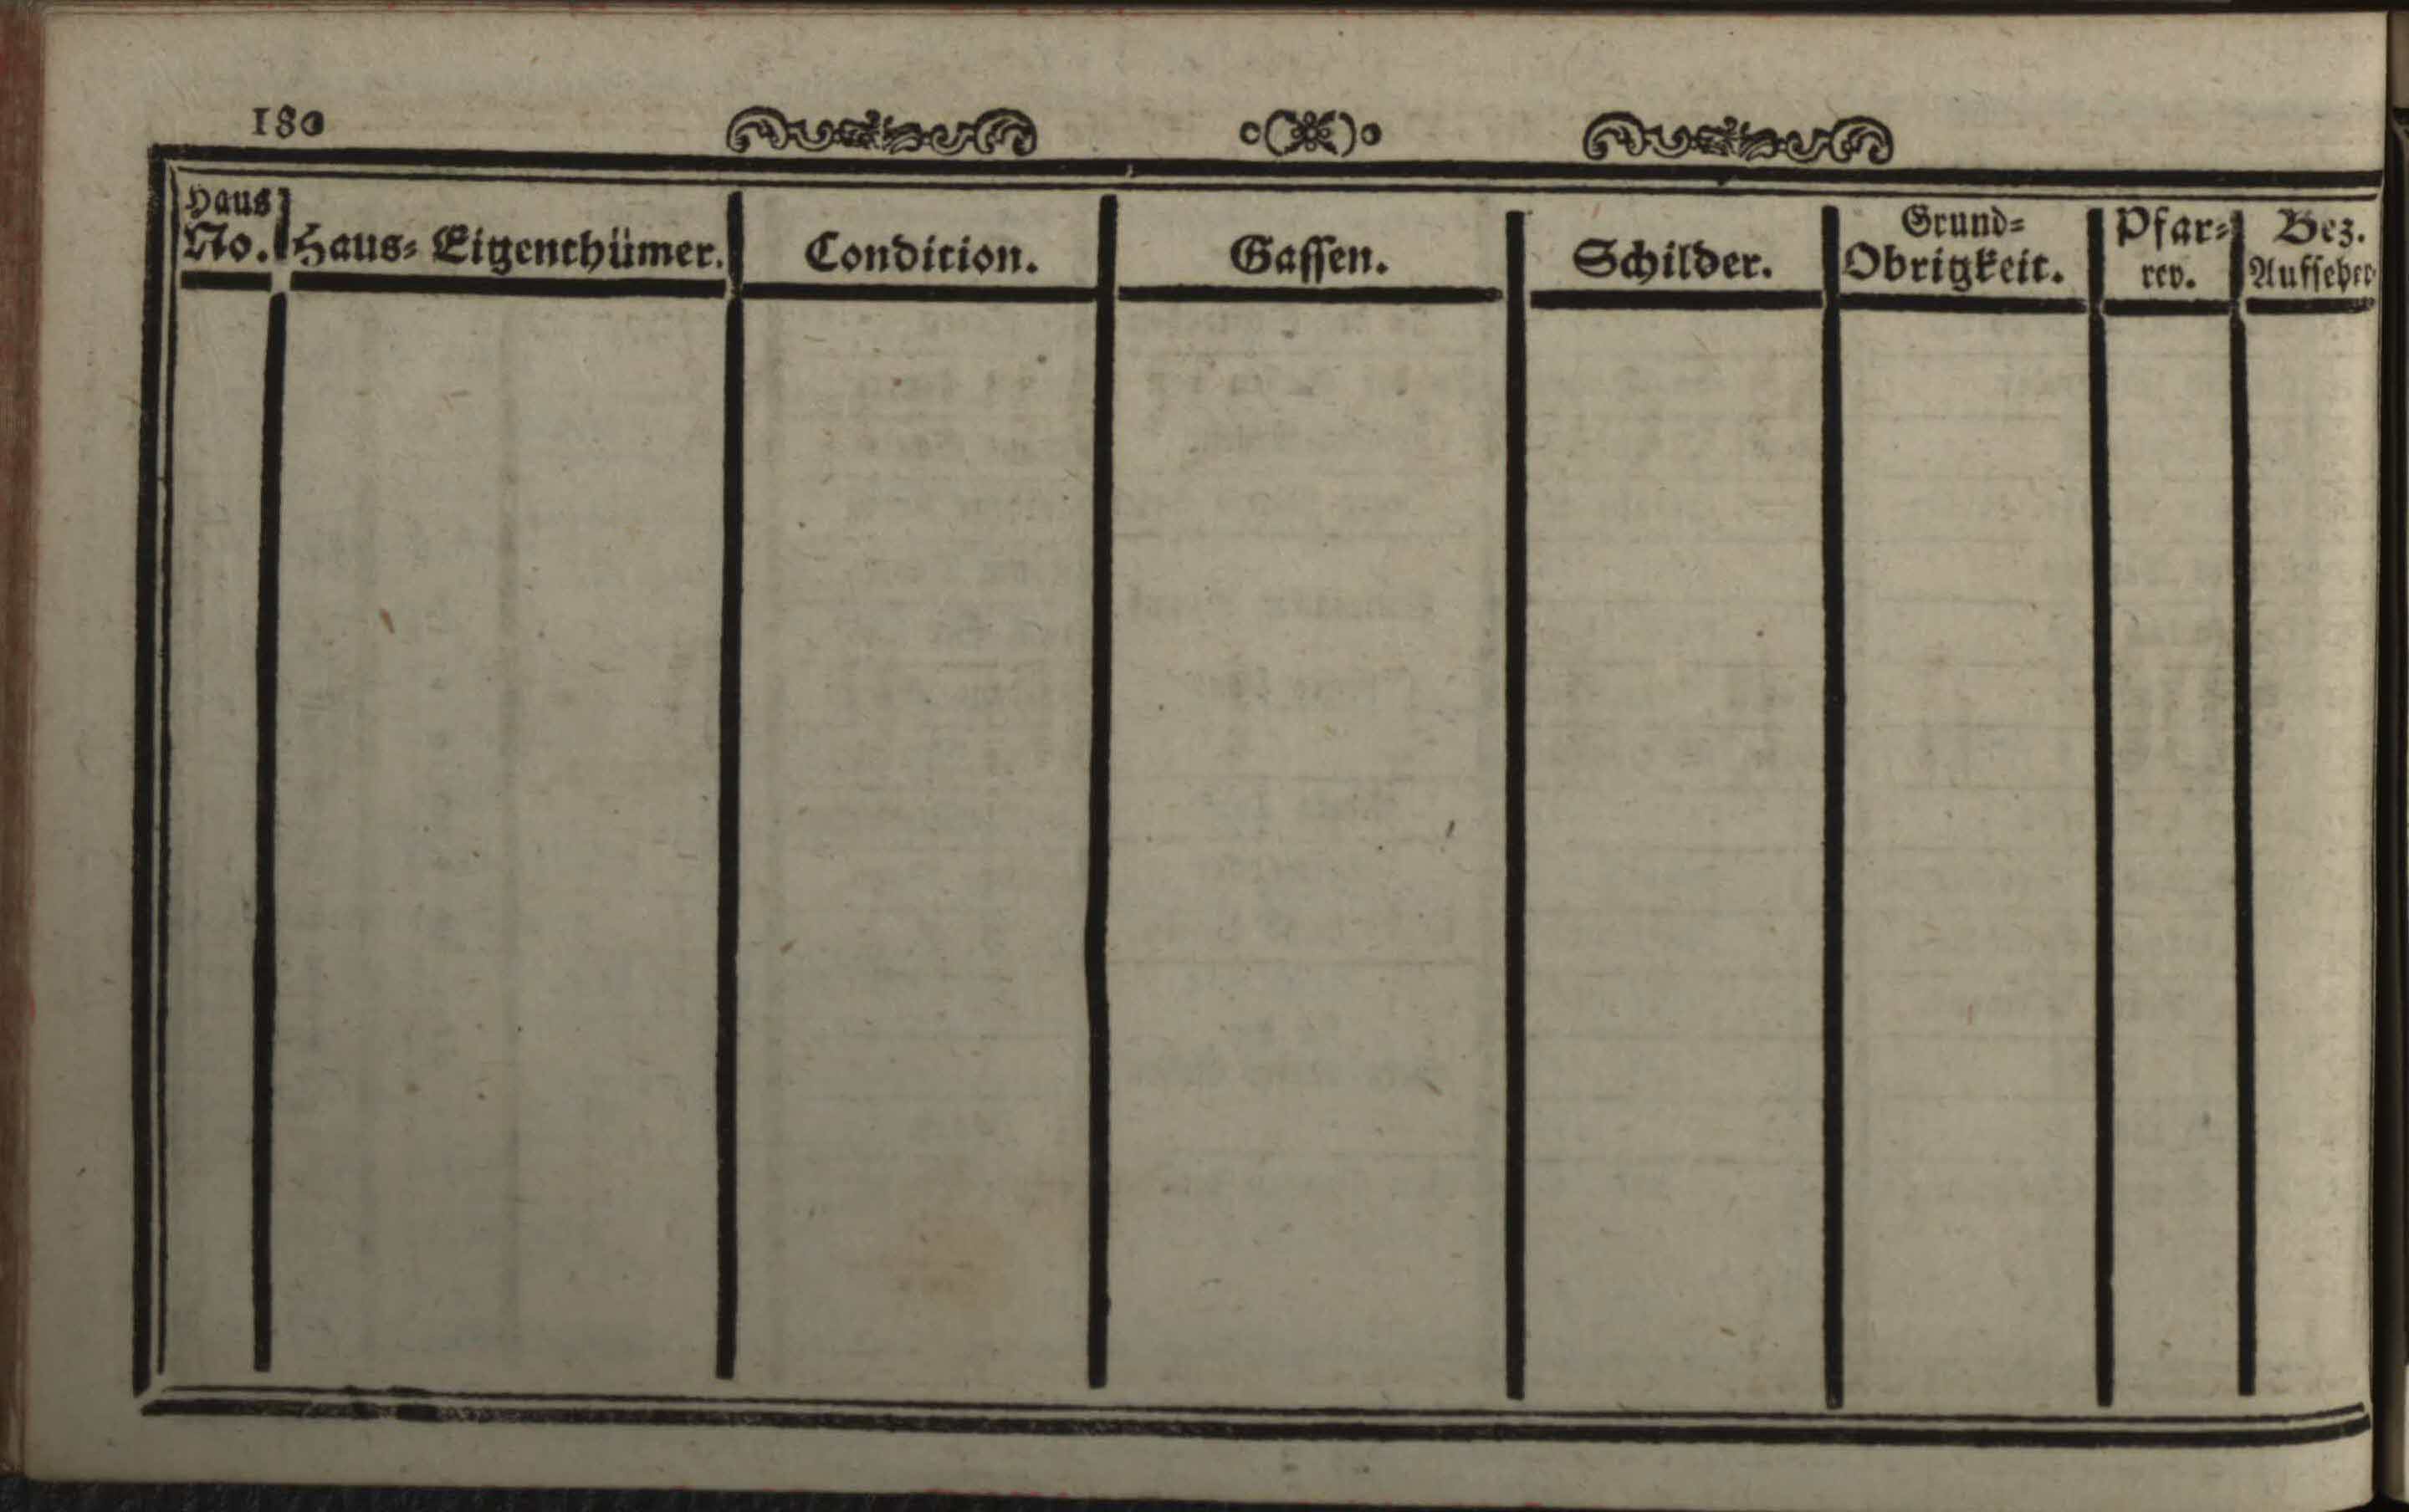 180
Haus No. Haus-Eigenthümer. Condition. Gassen. Schilder. Grund-Obrigkeit. Pfar-rey. Bez. Aufseher